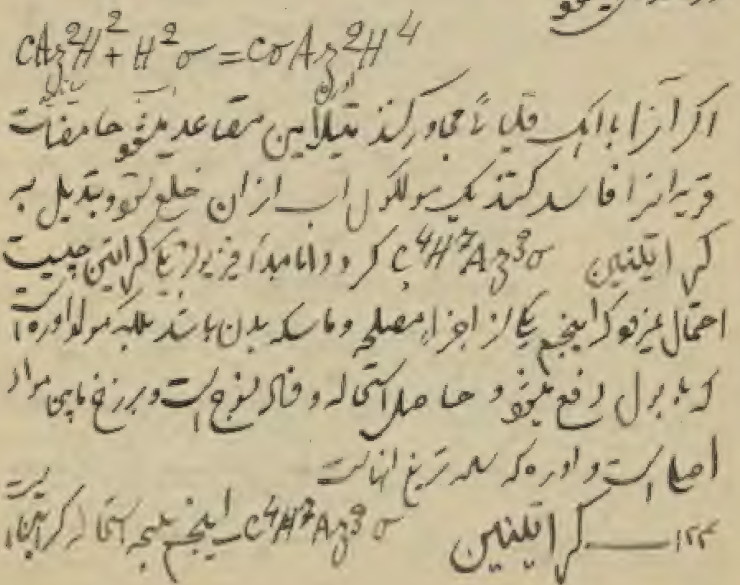 CAz²H² + H²O = COAz²H⁴
اگر آنرا با آهک قلیائی مجاور کنند متیلامین متصاعد میشود حامضات
قویه آنرا فاسد کنند یک مولکول آب از آن خلع شود و تبدیل به
کراتینین C⁴H⁷Az³O گردد اما مبدأ فیزیولژیکی کراتین چیست
احتمال نمیرود که اینجسم یکی از اجزاء مصلحه و ماسکه بدن باشد بلکه مولد اوره است
که با بول دفع میشود و حاصل استحاله و فساد نسوج است و برزخ مابین مواد
اصلی است و اوره که
۱۲۳ کراتینین C⁴H⁷Az³O اینجسم نتیجه استحاله کراتین است